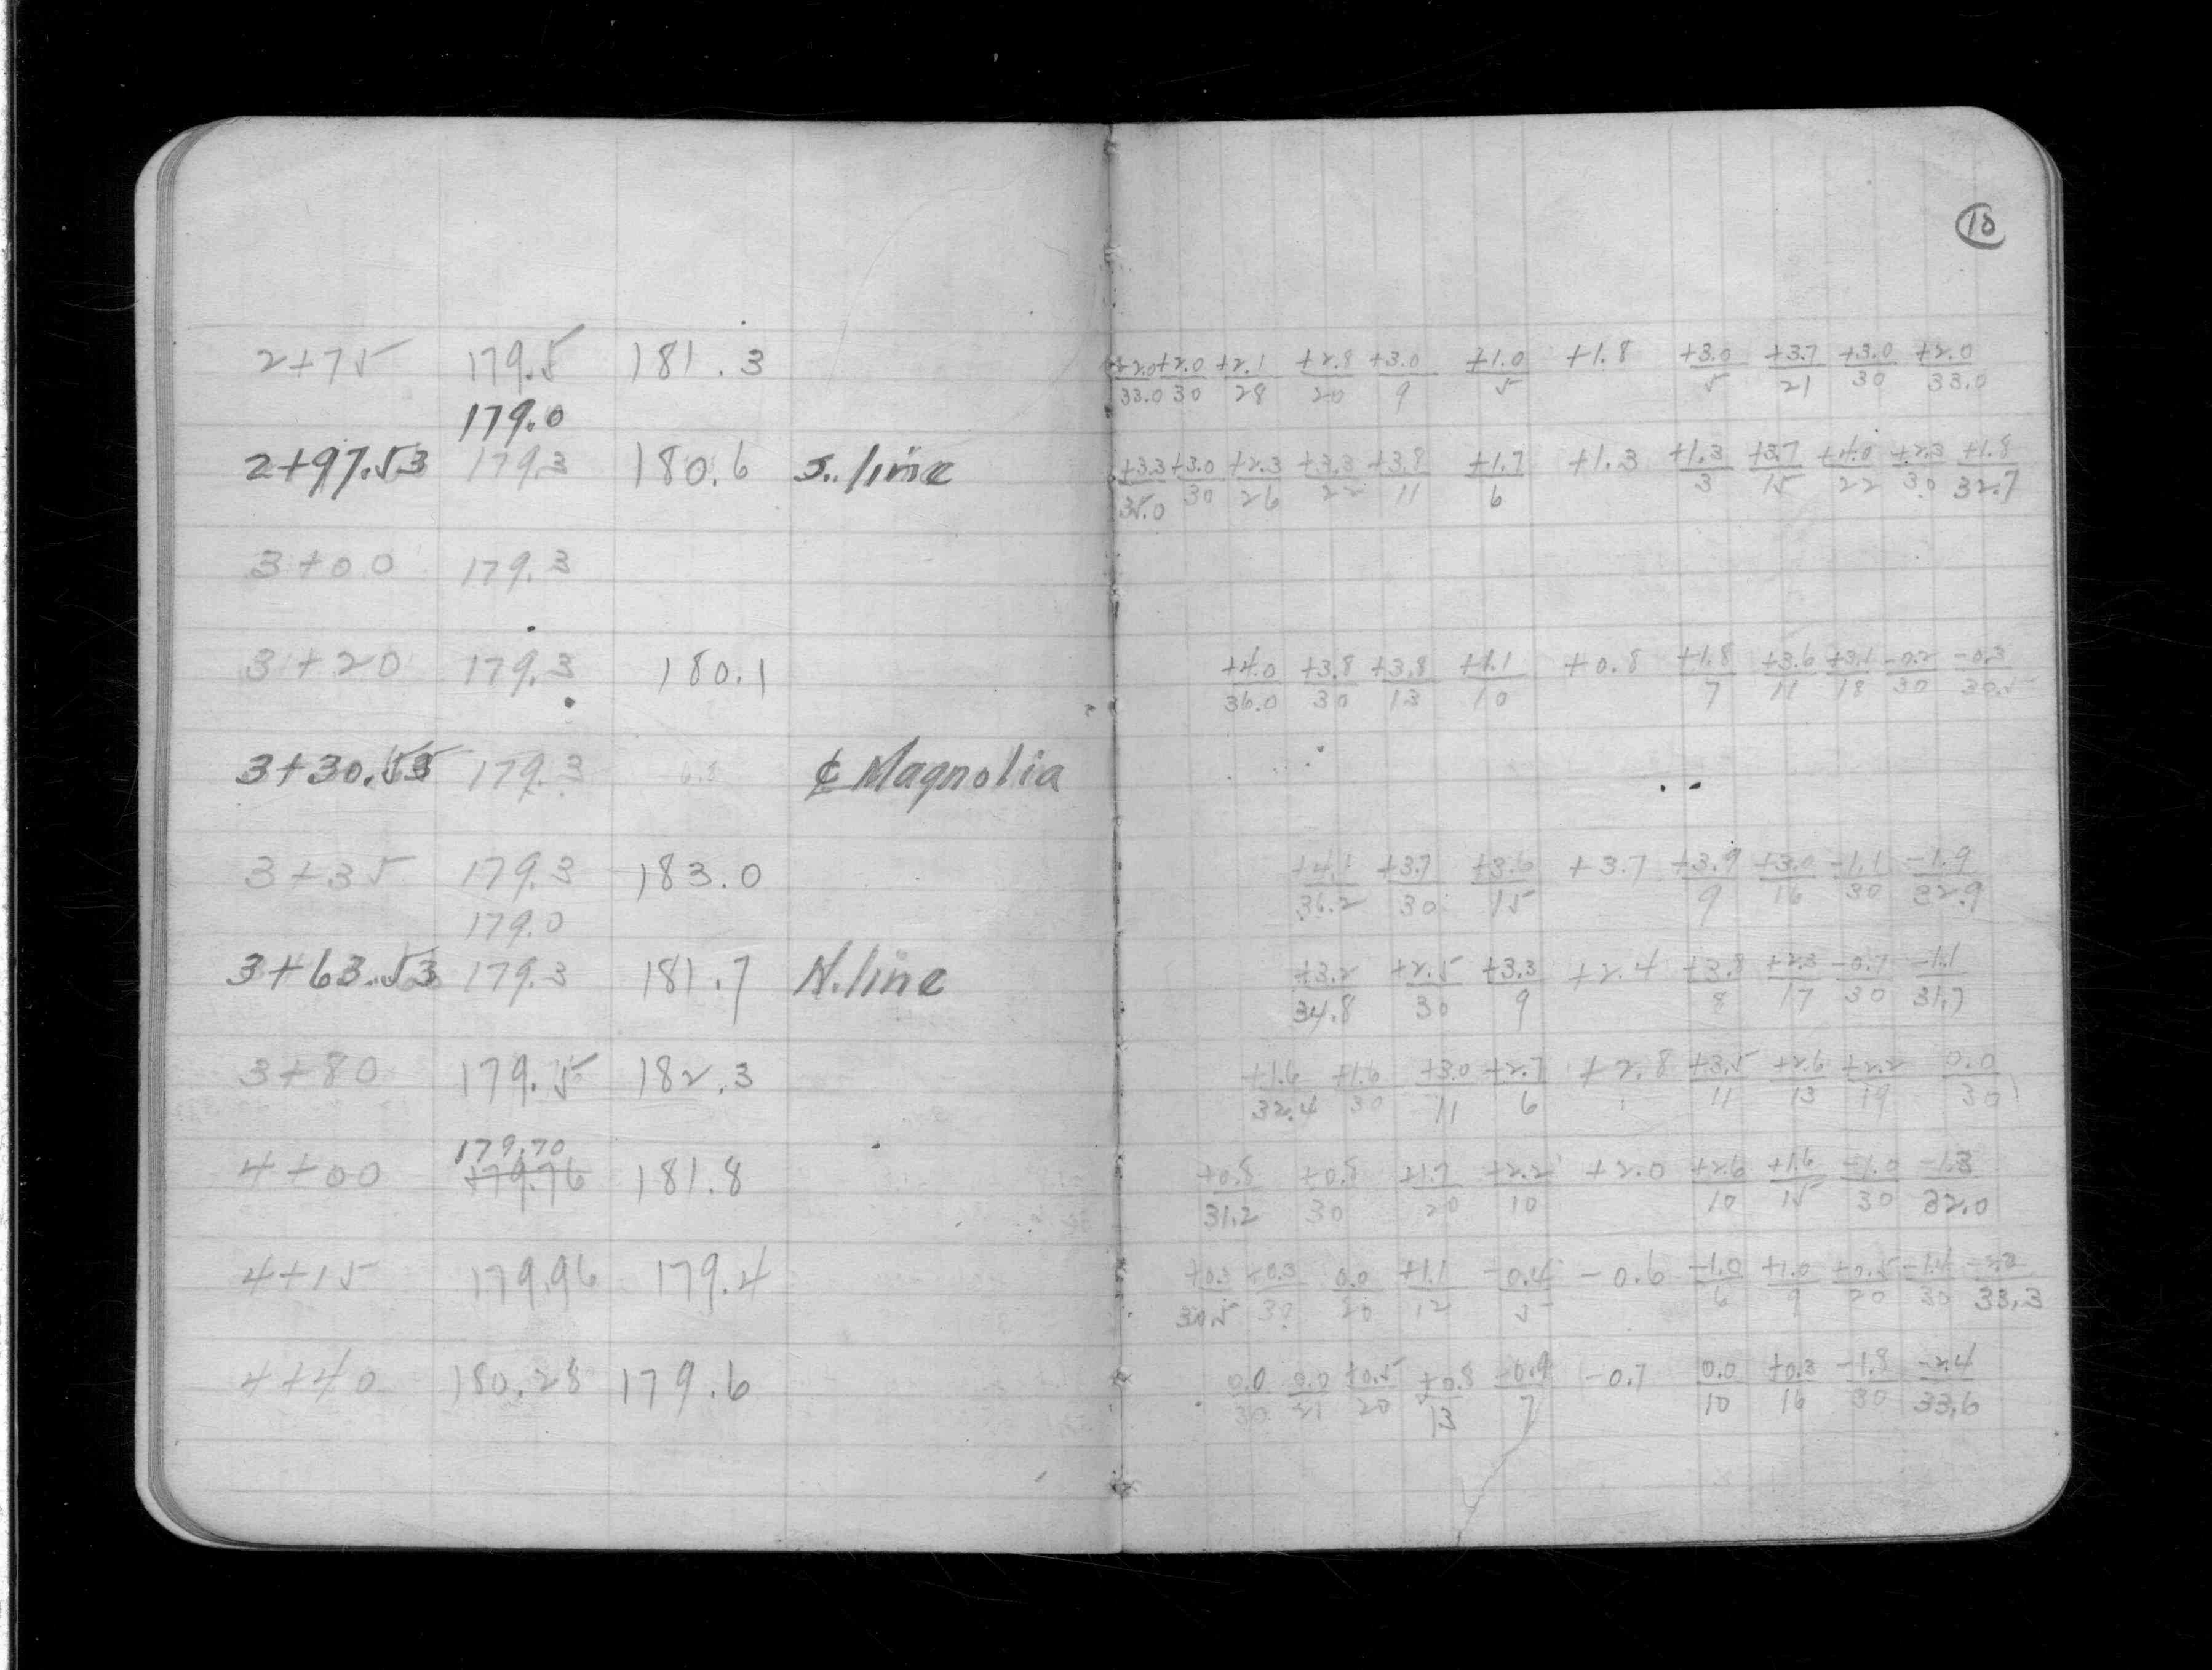 10
2+75 179.5 181.3 +2.0/33.0 +2.0/30 +2.1/28 +2.8/20 +3.0/9 +1.0/5 +1.8 +3.0/5 +3.7/21 +3.0/30 +2.0/33.0
179.0
2+97.53 179.3 180.6 S. line +3.3/35.0 +3.0/30 +2.3/26 +3.3/22 +3.8/11 +1.7/6 +1.3 +1.3/3 +3.7/15 +4.0/22 +2.3/30 +1.8/32.7
3+00 179.3
3+20 179.3 180.1 +4.0/36.0 +3.8/30 +3.8/13 +1.1/10 +0.8 +1.8/7 +3.6/11 +3.1/18 -0.2/30 -0.3/30.5
3+30.53 179.3 ₵ Magnolia
3+35 179.3 183.0 +4.1/36.2 +3.7/30 +3.6/15 +3.7 +3.9/9 +3.0/16 -1.1/30 -1.9/32.9
179.0
3+63.53 179.3 181.7 N. line +3.2/34.8 +2.5/30 +3.3/9 +2.4 +3.8/8 +2.3/17 -0.7/30 -1.1/31.7
3+80 179.5 182.3 +1.6/32.4 +1.6/30 +3.0/11 +2.7/6 +2.8 +3.5/11 +2.6/13 +2.2/19 0.0/30
179.70
4+00 179.76 181.8 +0.8/31.2 +0.8/30 +1.7/20 +2.2/10 +2.0 +2.6/10 +1.6/15 -1.0/30 -1.3/32.0
4+15 179.96 179.4 +0.3/30.5 +0.3/30 0.0/20 +1.1/12 -0.4/5 -0.6 -1.0/6 +1.0/9 +0.5/20 -1.4/30 /33.3
4+40 180.28 179.6 0.0/30 0.0/21 +0.5/20 +0.8/13 -0.9/7 -0.7 0.0/10 +0.3/16 -1.8/30 -2.4/33.6